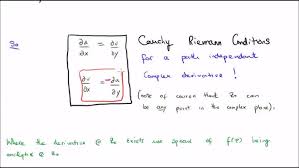 So
∂u/∂x = ∂v/∂y
∂v/∂x = -∂u/∂y
Cauchy Riemann Conditions
for a path independent
complex derivative !
(note of course that Zo can
be any point in the complex plane).
Where the derivative @ Zo exists was speak of f(z) being
analytic @ Zo.